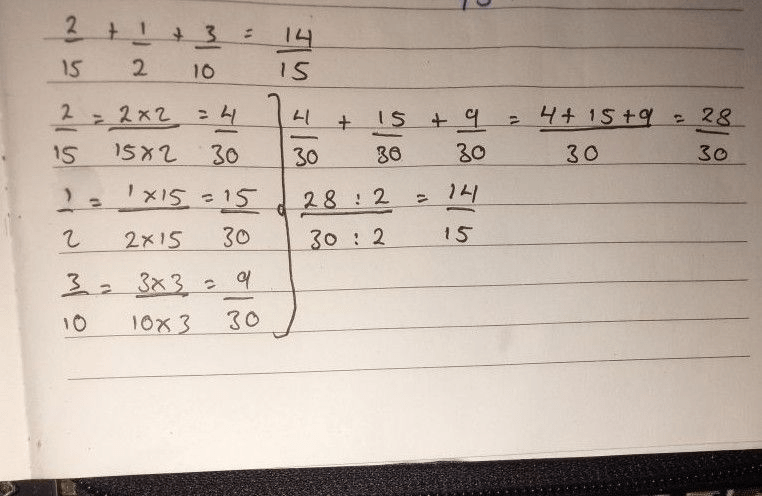 2/15 + 1/2 + 3/10 = 14/15
2/15 = 2×2/15×2 = 4/30
1/2 = 1×15/2×15 = 15/30
3/10 = 3×3/10×3 = 9/30
4/30 + 15/30 + 9/30 = 4+15+9/30 = 28/30
28:2/30:2 = 14/15